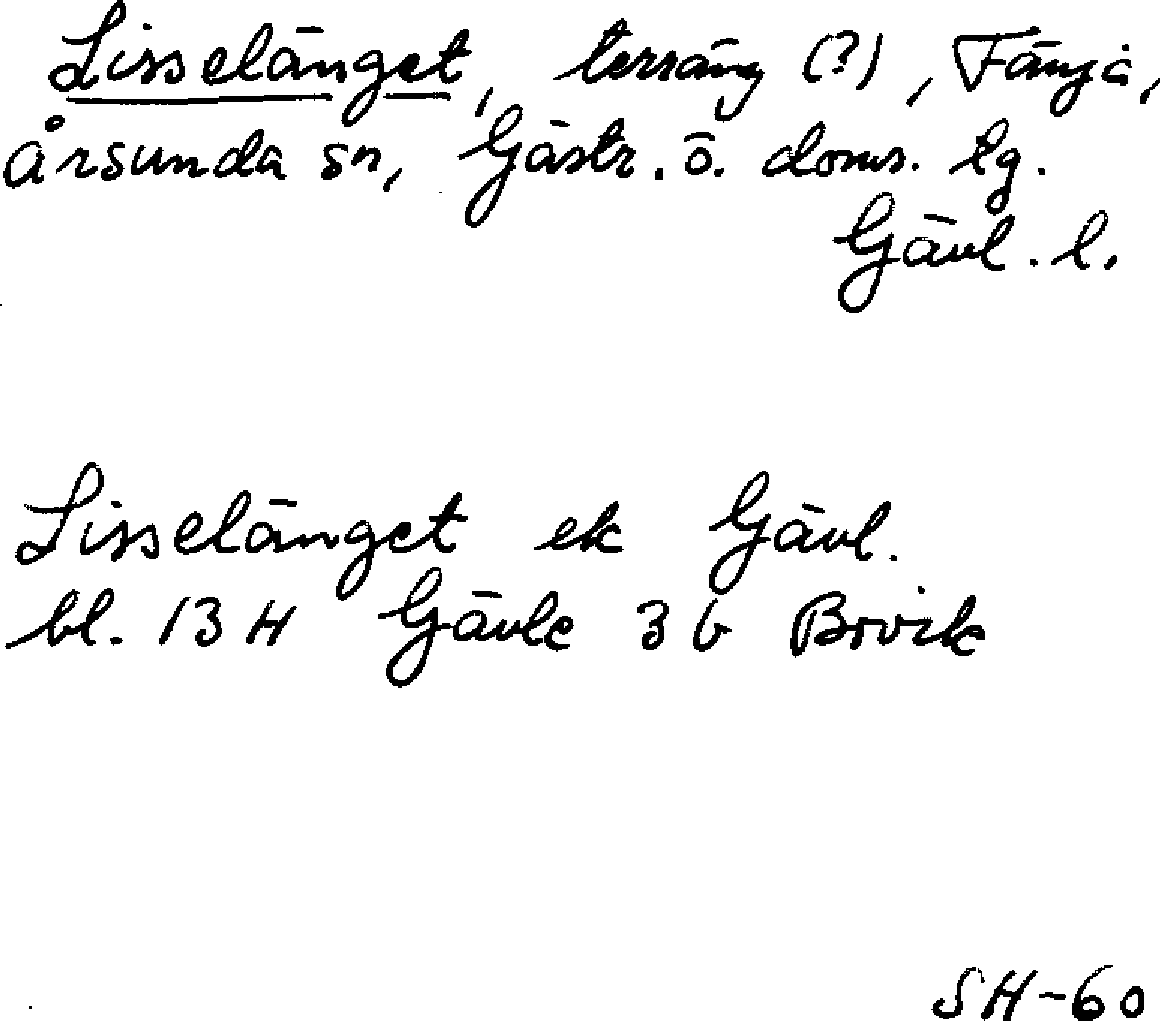 Lisselänget, terräng (?), Fänja,
Årsunda sn, Gästr. ö. doms. lg.
Gävl. l.
Lisselänget ek Gävl.
bl. 13 H Gävle 3 b Brvik
SH-60